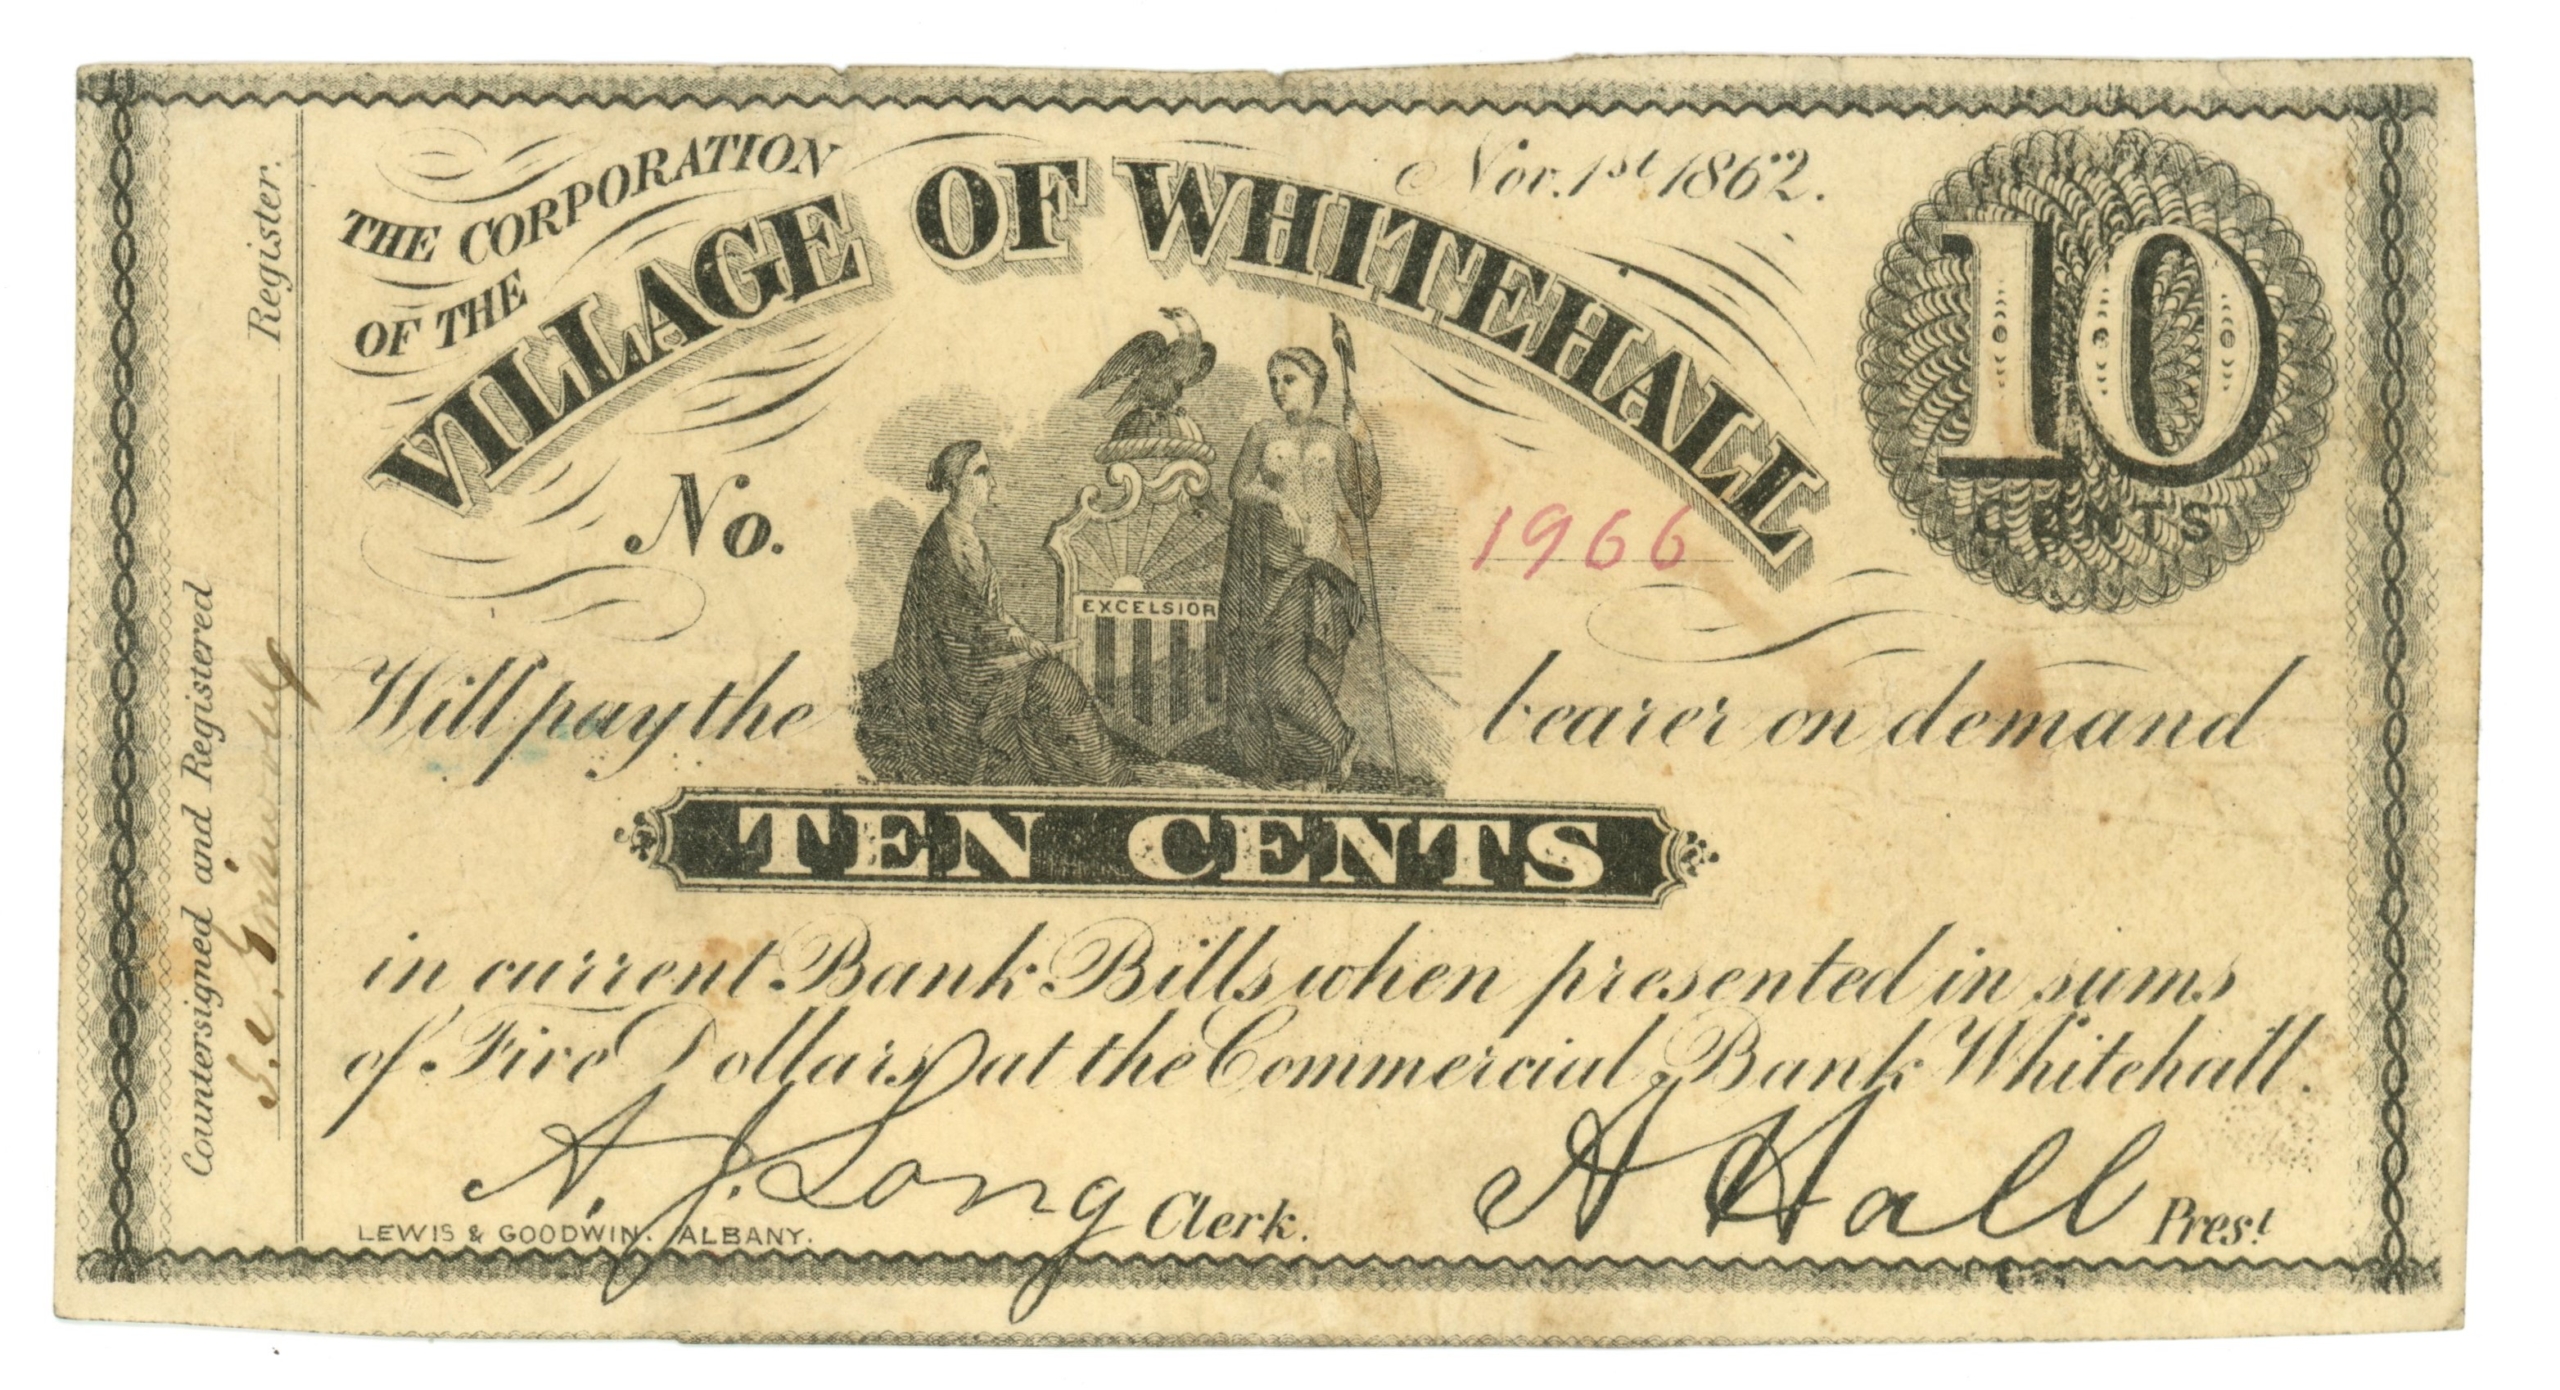 THE CORPORATION
OF THE
VILLAGE OF WHITEHALL
Nov. 1st 1862.
10
CENTS
No. 1966
EXCELSIOR
Will pay the bearer on demand
TEN CENTS
in current Bank Bills when presented in sums
of Five Dollars at the Commercial Bank Whitehall.
A. J. Long Clerk.
A Hall Prest
LEWIS & GOODWIN. ALBANY.
Countersigned and Registered
Register.